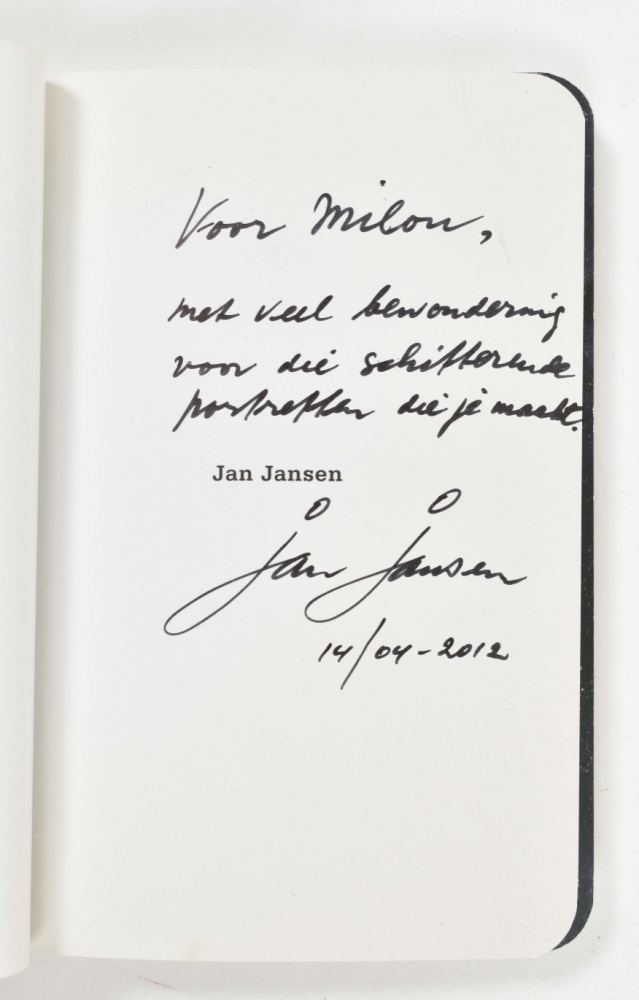 Voor Milou,
met veel bewondering
voor die schitterende
portretten die je maakt.
Jan Jansen
Jan Jansen
14/04-2012